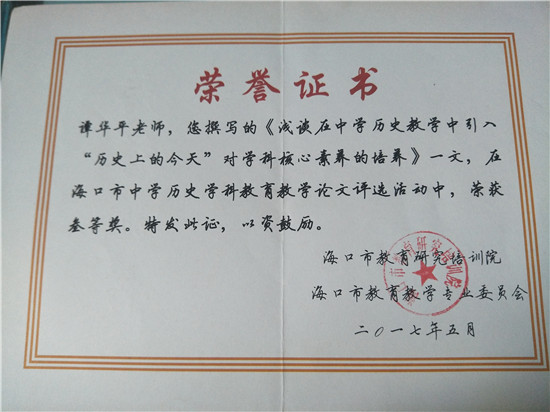 荣誉证书
谭华平老师，您撰写的《浅谈在中学历史教学中引入
“历史上的今天”对学科核心素养的培养》一文，在
海口市中学历史学科教育教学论文评选活动中，荣获
叁等奖。特发此证，以资鼓励。
海口市教育研究培训院
海口市教育教学专业委员会
二〇一七年五月